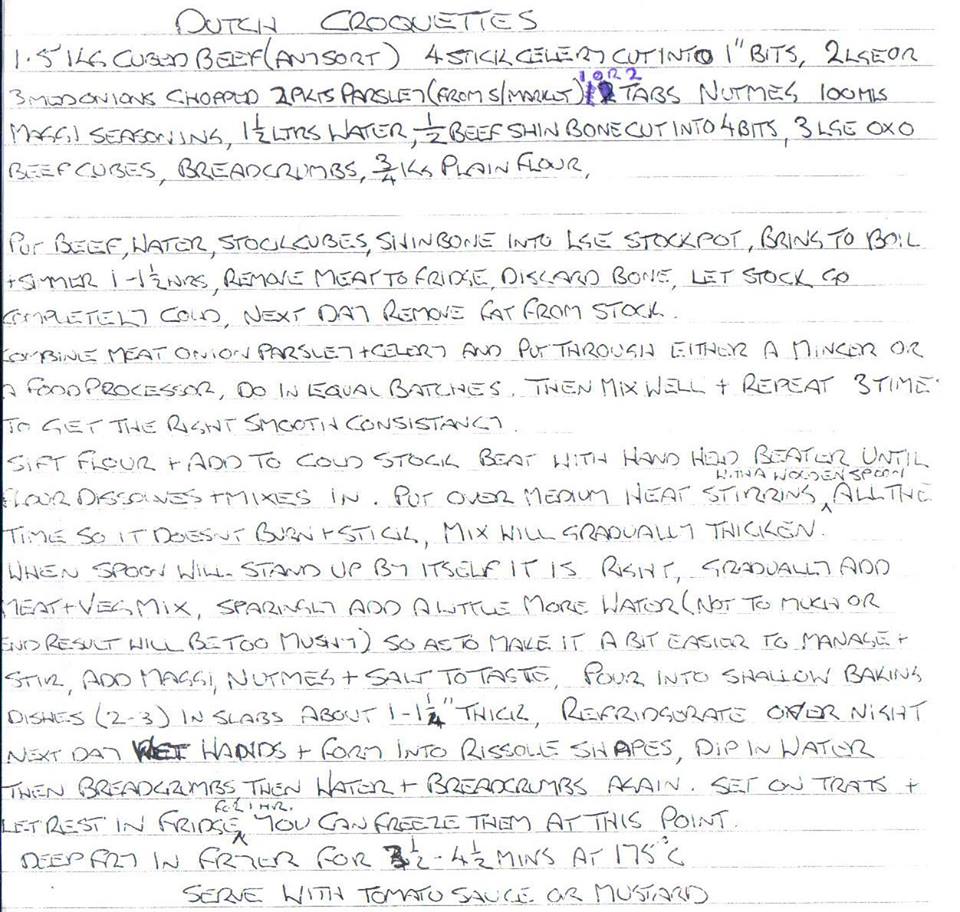 DUTCH CROQUETTES
1.5 KG CUBED BEEF (ANY SORT) 4 STICK CELERY CUT INTO 1" BITS, 2 LGE OR
3 MED ONIONS CHOPPED 2 PKTS PARSLEY (FROM S/MARKET) 1 OR 2 TABS NUTMEG 100 MLS
MAGGI SEASONING, 1½ LTRS WATER, ½ BEEF SHIN BONE CUT INTO 4 BITS, 3 LGE OXO
BEEF CUBES, BREADCRUMBS, ¾ KG PLAIN FLOUR,
PUT BEEF, WATER, STOCKCUBES, SHINBONE INTO LGE STOCKPOT, BRING TO BOIL
+ SIMMER 1-1½ HRS, REMOVE MEAT TO FRIDGE, DISCARD BONE, LET STOCK GO
COMPLETELY COLD, NEXT DAY REMOVE FAT FROM STOCK.
COMBINE MEAT ONION PARSLEY + CELERY AND PUT THROUGH EITHER A MINCER OR
A FOOD PROCESSOR, DO IN EQUAL BATCHES. THEN MIX WELL + REPEAT 3 TIME
TO GET THE RIGHT SMOOTH CONSISTANCY.
SIFT FLOUR + ADD TO COLD STOCK BEAT WITH HAND HELD BEATER UNTIL
FLOUR DISSOLVES + MIXES IN. PUT OVER MEDIUM HEAT STIRRING, WITH A WOODEN SPOON ALL THE
TIME SO IT DOESNT BURN + STICK, MIX WILL GRADUALLY THICKEN.
WHEN SPOON WILL STAND UP BY ITSELF IT IS RIGHT, GRADUALLY ADD
MEAT + VEG MIX, SPARINGLY ADD A LITTLE MORE WATER (NOT TO MUCH OR
END RESULT WILL BE TOO MUSHY) SO AS TO MAKE IT A BIT EASIER TO MANAGE +
STIR, ADD MAGGI, NUTMEG + SALT TO TASTE, POUR INTO SHALLOW BAKING
DISHES (2-3) IN SLABS ABOUT 1-1¼" THICK, REFRIDGORATE OVER NIGHT
NEXT DAY WET HANDS + FORM INTO RISSOLE SHAPES, DIP IN WATER
THEN BREADCRUMBS THEN WATER + BREADCRUMBS AGAIN. SET ON TRAYS +
LET REST IN FRIDGE FOR 1 HR. YOU CAN FREEZE THEM AT THIS POINT.
DEEP FRY IN FRYER FOR 3½-4½ MINS AT 175°C
SERVE WITH TOMATO SAUCE OR MUSTARD